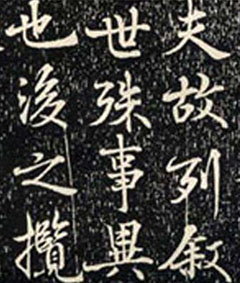 夫故列叙
世殊事異
也後之攬